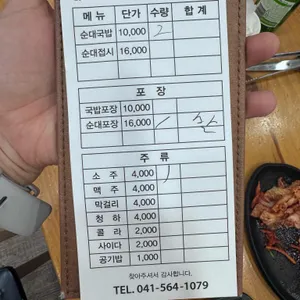 메뉴 단가 수량 합계
순대국밥 10,000 2
순대접시 16,000
포장
국밥포장 10,000
순대포장 16,000
주류
소주 4,000
맥주 4,000
막걸리 4,000
청하 4,000
콜라 2,000
사이다 2,000
공기밥 1,000
찾아주셔서 감사합니다.
TEL. 041-564-1079